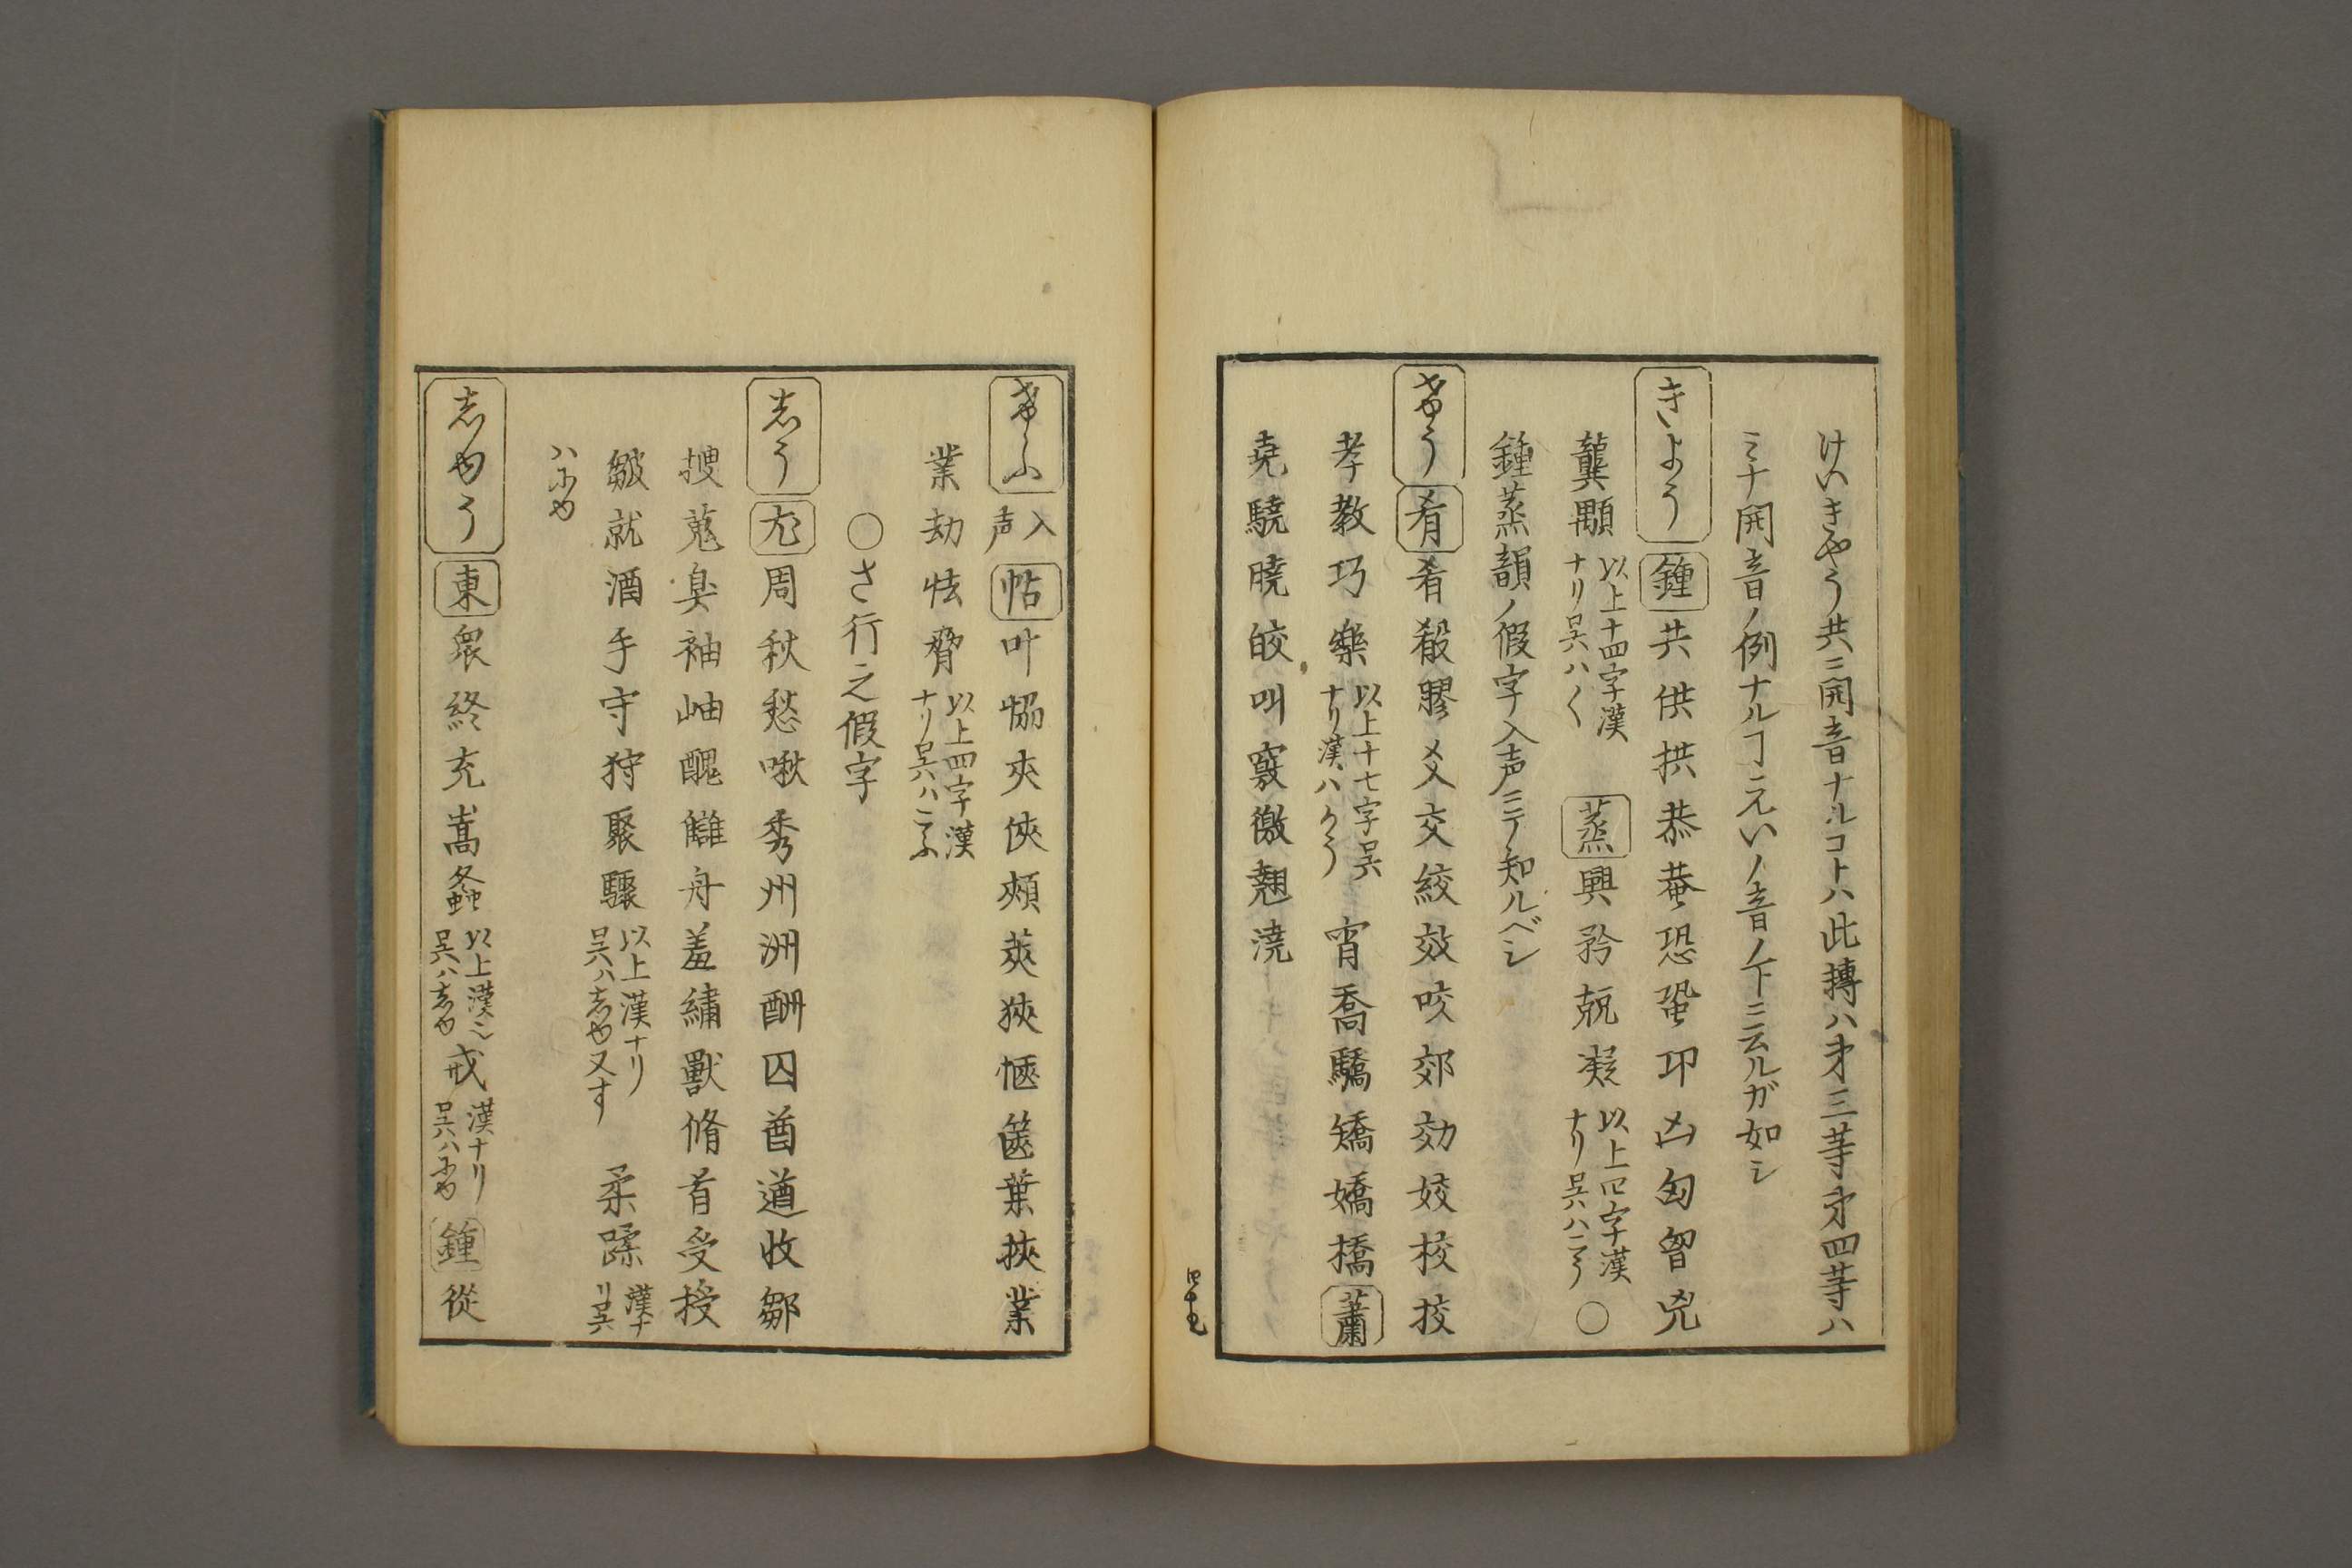 けいきやう共ニ開音ナルコトハ此轉ハ㐧三等㐧四等ハ
ミナ開音ノ例ナルヿえいノ音ノ下ニ云ルガ如シ
きよう 鍾 共供拱恭蛬恐蛩卭凶匈胷兇
龔顒 以上十四字漢ナリ呉ハく 蒸 興矜兢凝 以上四字漢ナリ呉ハこう ○
鍾蒸韻ノ假字入声ニテ知ルベシ
けう 肴 肴殽膠爻交絞效咬郊効姣校挍
孝教巧樂 以上十七字呉ナリ漢ハかう 宵 喬驕矯嬌橋 蕭
堯驍曉皎叫竅徼翹澆
四十五
けふ 入声 帖 叶協夾俠頰莢狹愜篋葉挾業
業劫怯脅 以上四字漢ナリ呉ハこふ
○さ行之假字
しう 尤 周秋愁啾秀州洲酬囚酋遒收鄒
搜蒐臭袖岫醜讎舟羞繡獸脩首受授
皺就酒手守狩聚驟 以上漢ナリ呉ハしゆ又す 柔蹂 漢ナリ呉
ハにゆ
しゆう 東 衆終充嵩螽 以上漢ニ呉ハしゆ 戎 漢ナリ呉ハにゆ 鍾 從